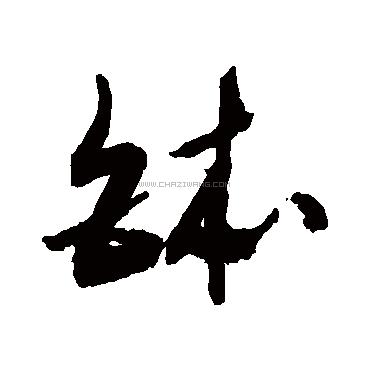 鉢
WWW.CHAZIWANG.COM